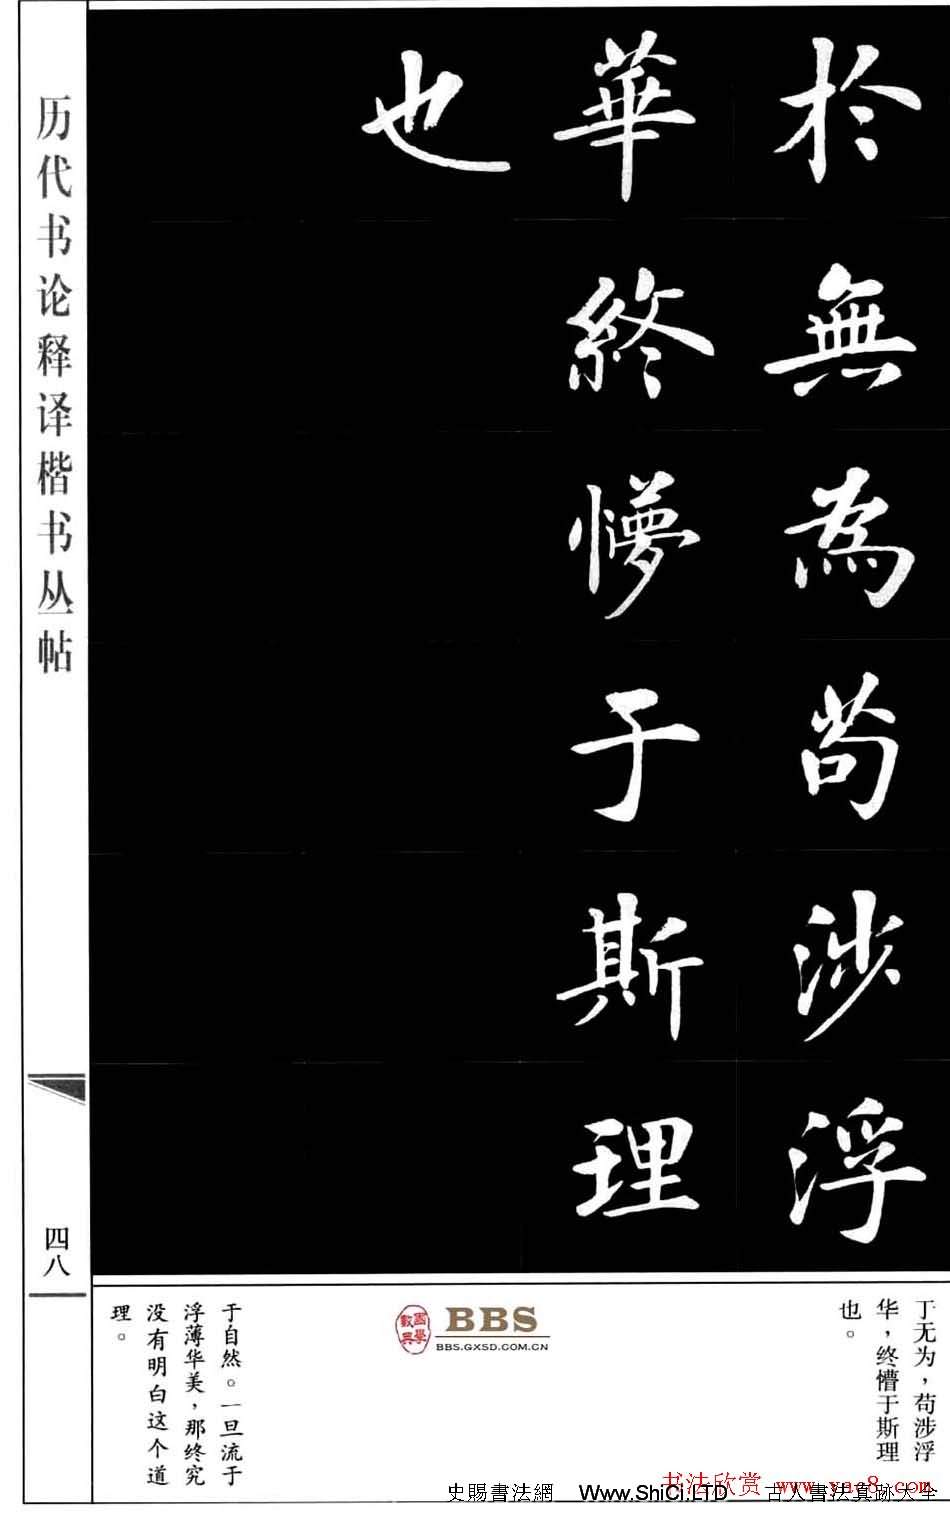 於無為苟涉浮
華終懵于斯理
也
历代书论释译楷书丛帖
四八
于无为，苟涉浮
华，终懵于斯理
也。
于自然。一旦流于
浮薄华美，那终究
没有明白这个道
理。
BBS
BBS.GXSD.COM.CN
书法欣赏 www.yac8.com
史賜書法網 Www.ShiCi.LTD 古人書法真跡大全